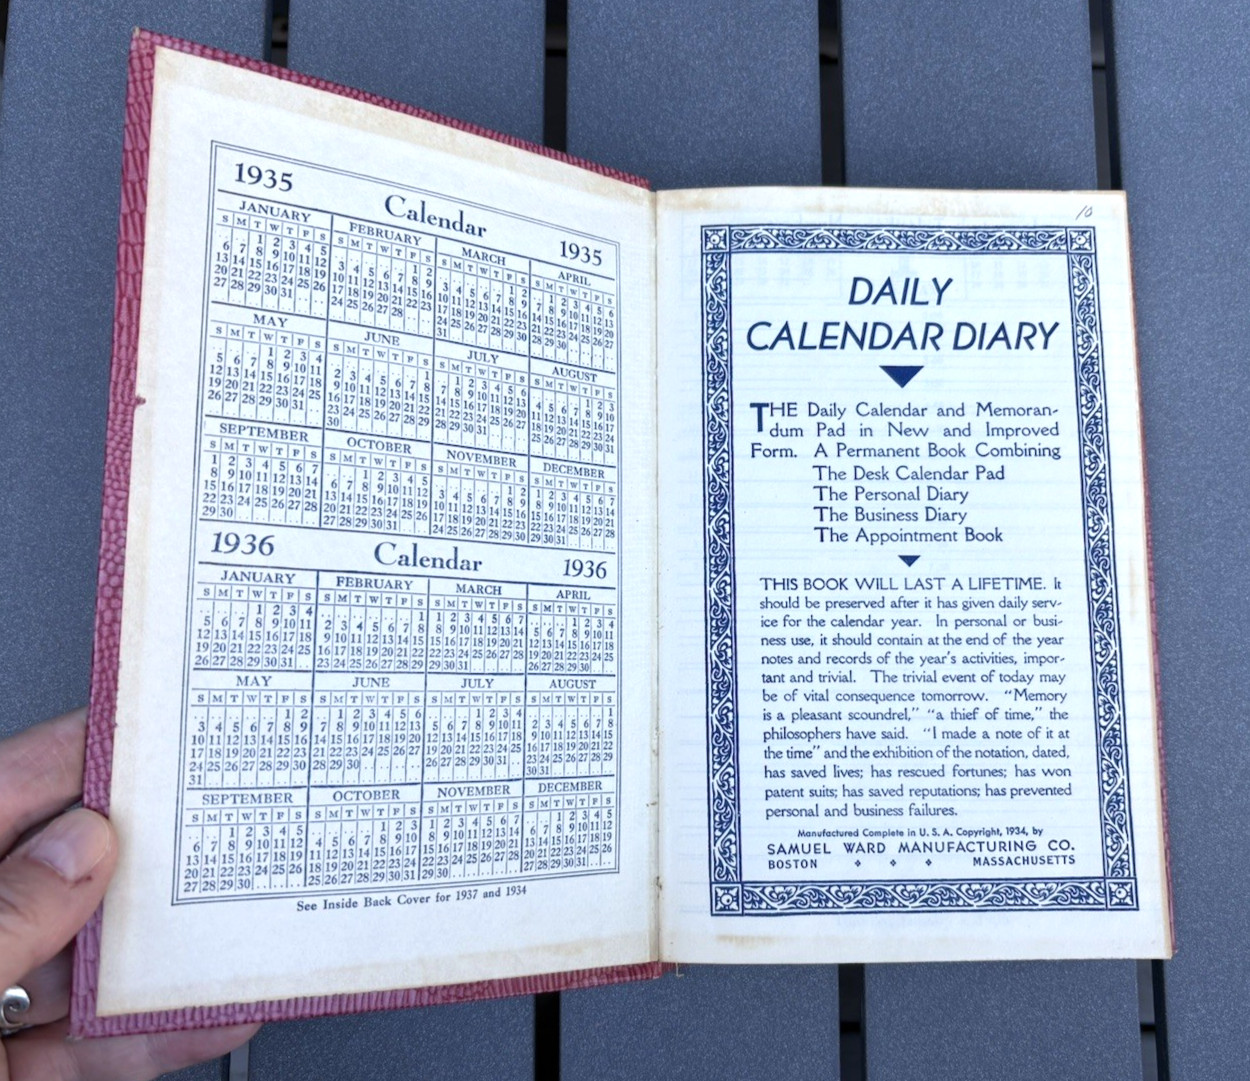 1935
Calendar
1935
JANUARY
S M T W T F S
1 2 3 4 5
6 7 8 9 10 11 12
13 14 15 16 17 18 19
20 21 22 23 24 25 26
27 28 29 30 31
FEBRUARY
S M T W T F S
1 2
3 4 5 6 7 8 9
10 11 12 13 14 15 16
17 18 19 20 21 22 23
24 25 26 27 28
MARCH
S M T W T F S
1 2
3 4 5 6 7 8 9
10 11 12 13 14 15 16
17 18 19 20 21 22 23
24 25 26 27 28 29 30
31
APRIL
S M T W T F S
1 2 3 4 5 6
7 8 9 10 11 12 13
14 15 16 17 18 19 20
21 22 23 24 25 26 27
28 29 30
MAY
S M T W T F S
1 2 3 4
5 6 7 8 9 10 11
12 13 14 15 16 17 18
19 20 21 22 23 24 25
26 27 28 29 30 31
JUNE
S M T W T F S
1
2 3 4 5 6 7 8
9 10 11 12 13 14 15
16 17 18 19 20 21 22
23 24 25 26 27 28 29
30
JULY
S M T W T F S
1 2 3 4 5 6
7 8 9 10 11 12 13
14 15 16 17 18 19 20
21 22 23 24 25 26 27
28 29 30 31
AUGUST
S M T W T F S
1 2 3
4 5 6 7 8 9 10
11 12 13 14 15 16 17
18 19 20 21 22 23 24
25 26 27 28 29 30 31
SEPTEMBER
S M T W T F S
1 2 3 4 5 6 7
8 9 10 11 12 13 14
15 16 17 18 19 20 21
22 23 24 25 26 27 28
29 30
OCTOBER
S M T W T F S
1 2 3 4 5
6 7 8 9 10 11 12
13 14 15 16 17 18 19
20 21 22 23 24 25 26
27 28 29 30 31
NOVEMBER
S M T W T F S
1 2
3 4 5 6 7 8 9
10 11 12 13 14 15 16
17 18 19 20 21 22 23
24 25 26 27 28 29 30
DECEMBER
S M T W T F S
1 2 3 4 5 6 7
8 9 10 11 12 13 14
15 16 17 18 19 20 21
22 23 24 25 26 27 28
29 30 31
1936
Calendar
1936
JANUARY
S M T W T F S
1 2 3 4
5 6 7 8 9 10 11
12 13 14 15 16 17 18
19 20 21 22 23 24 25
26 27 28 29 30 31
FEBRUARY
S M T W T F S
1
2 3 4 5 6 7 8
9 10 11 12 13 14 15
16 17 18 19 20 21 22
23 24 25 26 27 28 29
MARCH
S M T W T F S
1 2 3 4 5 6 7
8 9 10 11 12 13 14
15 16 17 18 19 20 21
22 23 24 25 26 27 28
29 30 31
APRIL
S M T W T F S
1 2 3 4
5 6 7 8 9 10 11
12 13 14 15 16 17 18
19 20 21 22 23 24 25
26 27 28 29 30
MAY
S M T W T F S
1 2
3 4 5 6 7 8 9
10 11 12 13 14 15 16
17 18 19 20 21 22 23
24 25 26 27 28 29 30
31
JUNE
S M T W T F S
1 2 3 4 5 6
7 8 9 10 11 12 13
14 15 16 17 18 19 20
21 22 23 24 25 26 27
28 29 30
JULY
S M T W T F S
1 2 3 4
5 6 7 8 9 10 11
12 13 14 15 16 17 18
19 20 21 22 23 24 25
26 27 28 29 30 31
AUGUST
S M T W T F S
1
2 3 4 5 6 7 8
9 10 11 12 13 14 15
16 17 18 19 20 21 22
23 24 25 26 27 28 29
30 31
SEPTEMBER
S M T W T F S
1 2 3 4 5
6 7 8 9 10 11 12
13 14 15 16 17 18 19
20 21 22 23 24 25 26
27 28 29 30
OCTOBER
S M T W T F S
1 2 3
4 5 6 7 8 9 10
11 12 13 14 15 16 17
18 19 20 21 22 23 24
25 26 27 28 29 30 31
NOVEMBER
S M T W T F S
1 2 3 4 5 6 7
8 9 10 11 12 13 14
15 16 17 18 19 20 21
22 23 24 25 26 27 28
29 30
DECEMBER
S M T W T F S
1 2 3 4 5
6 7 8 9 10 11 12
13 14 15 16 17 18 19
20 21 22 23 24 25 26
27 28 29 30 31
See Inside Back Cover for 1937 and 1934
10
DAILY
CALENDAR DIARY
THE Daily Calendar and Memoran-
dum Pad in New and Improved
Form. A Permanent Book Combining
The Desk Calendar Pad
The Personal Diary
The Business Diary
The Appointment Book
THIS BOOK WILL LAST A LIFETIME. It
should be preserved after it has given daily serv-
ice for the calendar year. In personal or busi-
ness use, it should contain at the end of the year
notes and records of the year's activities, impor-
tant and trivial. The trivial event of today may
be of vital consequence tomorrow. "Memory
is a pleasant scoundrel," "a thief of time," the
philosophers have said. "I made a note of it at
the time" and the exhibition of the notation, dated,
has saved lives; has rescued fortunes; has won
patent suits; has saved reputations; has prevented
personal and business failures.
Manufactured Complete in U. S. A. Copyright, 1934, by
SAMUEL WARD MANUFACTURING CO.
BOSTON MASSACHUSETTS